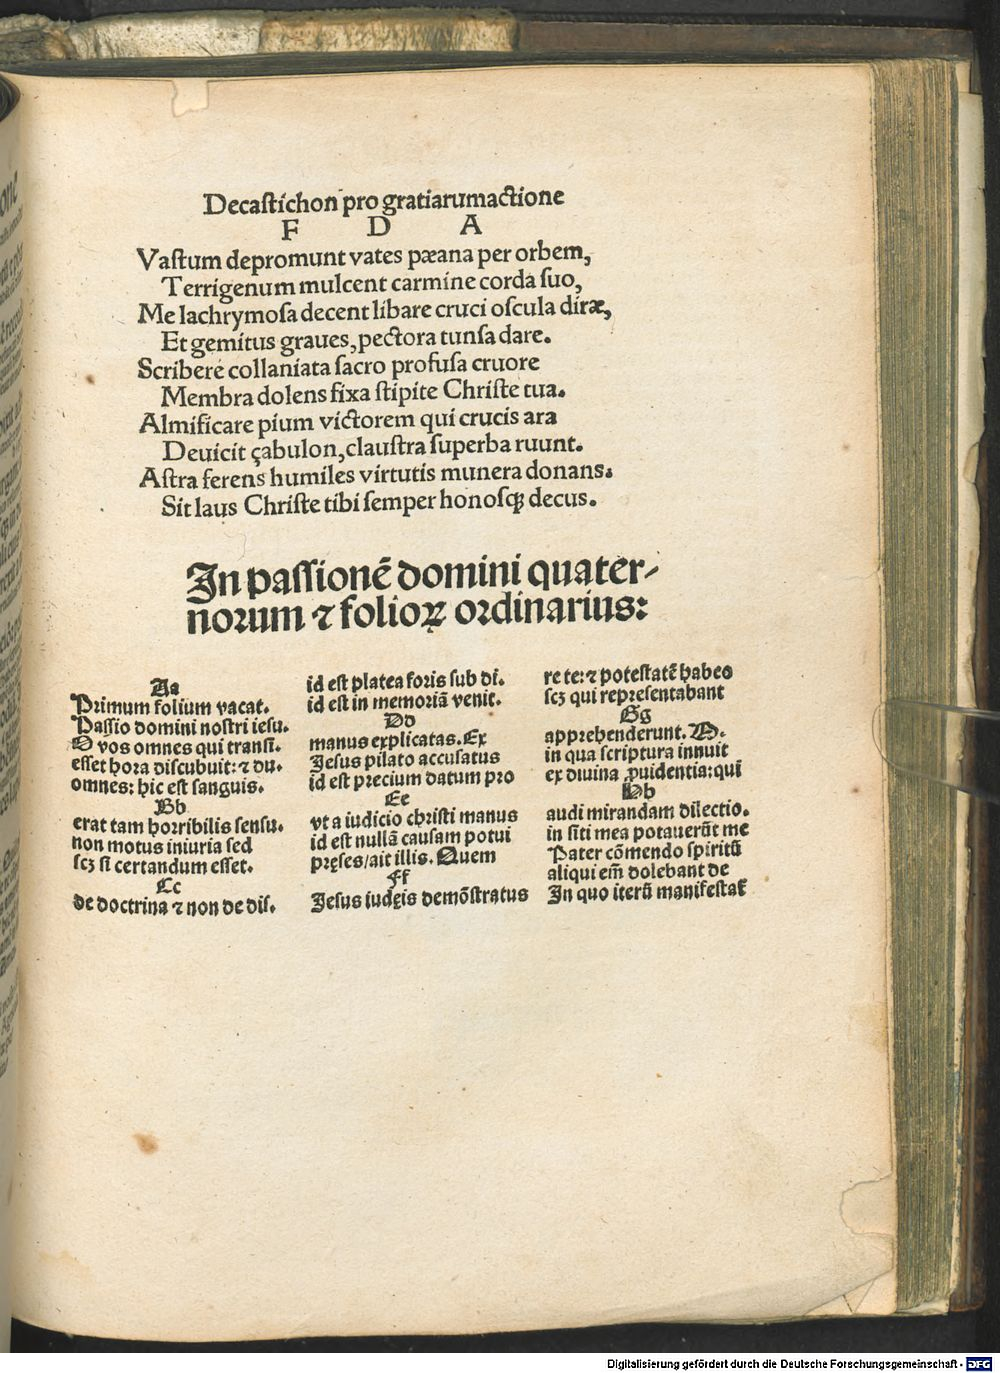 Decastichon pro gratiarumactione
F D A
Vastum depromunt vates pæana per orbem,
Terrigenum mulcent carmine corda suo,
Me lachrymosa decent libare cruci oscula diræ,
Et gemitus graues, pectora tunsa dare.
Scribere collaniata sacro profusa cruore
Membra dolens fixa stipite Christe tua.
Almificare pium victorem qui crucis ara
Deuicit çabulon, claustra superba ruunt.
Astra ferens humiles virtutis munera donans.
Sit laus Christe tibi semper honosqꝫ decus.
In passionē domini quater-
norum ⁊ folioꝝ ordinarius:
Aa
Primum folium vacat.
Passio domini nostri iesu.
O vos omnes qui transi.
esset hora discubuit: ⁊ du.
omnes: hic est sanguis.
Bb
erat tam horribilis sensu.
non motus iniuria sed
scꝫ si certandum esset.
Cc
de doctrina ⁊ non de dis.
id est platea foris sub di.
id est in memoriā venit.
Dd
manus explicatas. Ex
Jesus pilato accusatus
id est precium datum pro
Ee
vt a iudicio christi manus
id est nullā causam potui
pręses/ait illis. Quem
Ff
Jesus iudęis demōstratus
re te: ⁊ potestatē habeo
scꝫ qui representabant
Gg
apprehenderunt.
in qua scriptura innuit
ex diuina ꝓuidentia: qui
Hh
audi mirandam dilectio.
in siti mea potauerūt me
Pater cōmendo spiritū
aliqui em̄ dolebant de
In quo iterū manifestat̄
Digitalisierung gefördert durch die Deutsche Forschungsgemeinschaft - DFG